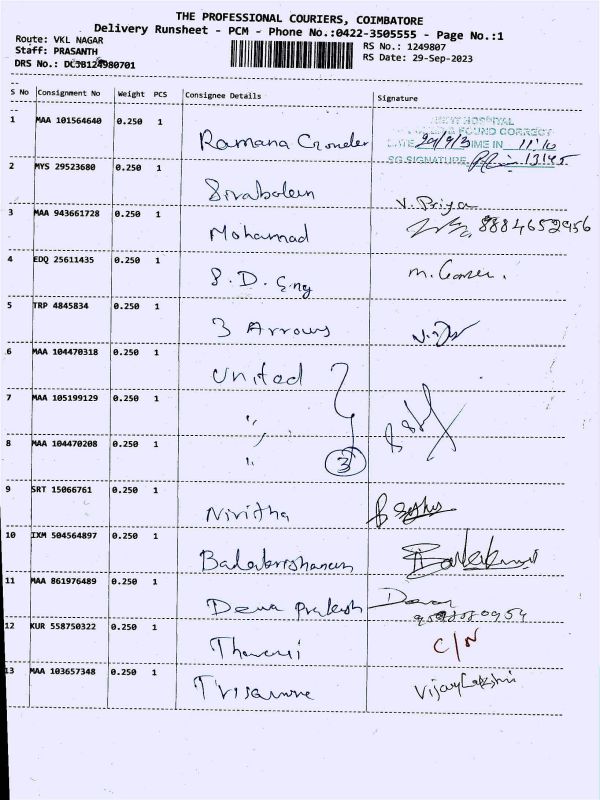 THE PROFESSIONAL COURIERS, COIMBATORE
Delivery Runsheet - PCM - Phone No.:0422-3505555 - Page No.:1
Route: VKL NAGAR
Staff: PRASANTH
RS No.: 1249807
DRS No.: DCJB124980701
RS Date: 29-Sep-2023
S No Consignment No Weight PCS Consignee Details Signature
1 MAA 101564640 0.250 1 Ramana
FOUND CORRECT
TIME IN 11:10
SG SIGNATURE
2 MYS 29523680 0.250 1
V. Priya
3 MAA 943661728 0.250 1 Mohamad 8884652956
4 EDQ 25611435 0.250 1 S.D. Eng
5 TRP 4845834 0.250 1 3 Arrows
6 MAA 104470318 0.250 1 United
7 MAA 105199129 0.250 1 "
8 MAA 104470208 0.250 1 " 3
9 SRT 15066761 0.250 1 Nivitha
10 IXM 504564897 0.250 1
11 MAA 861976489 0.250 1 Deva Prakash
12 KUR 558750322 0.250 1 C/N
13 MAA 103657348 0.250 1 Vijaylakshmi